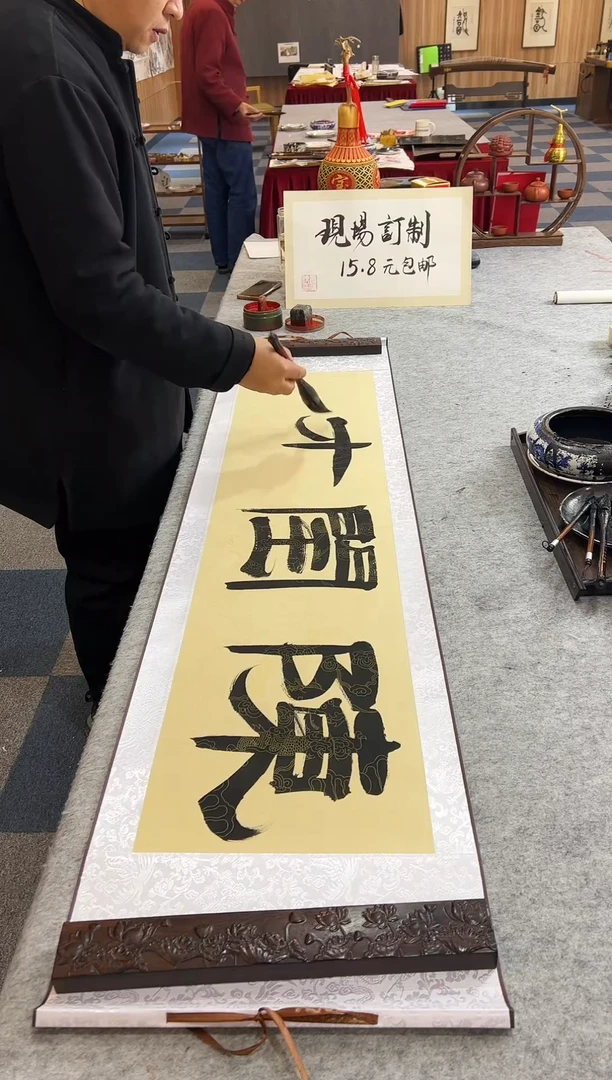 現場訂制
15.8元包邮
陳閏